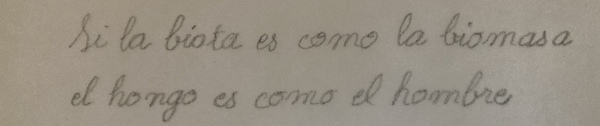 Si la biota es como la biomasa
el hongo es como el hombre